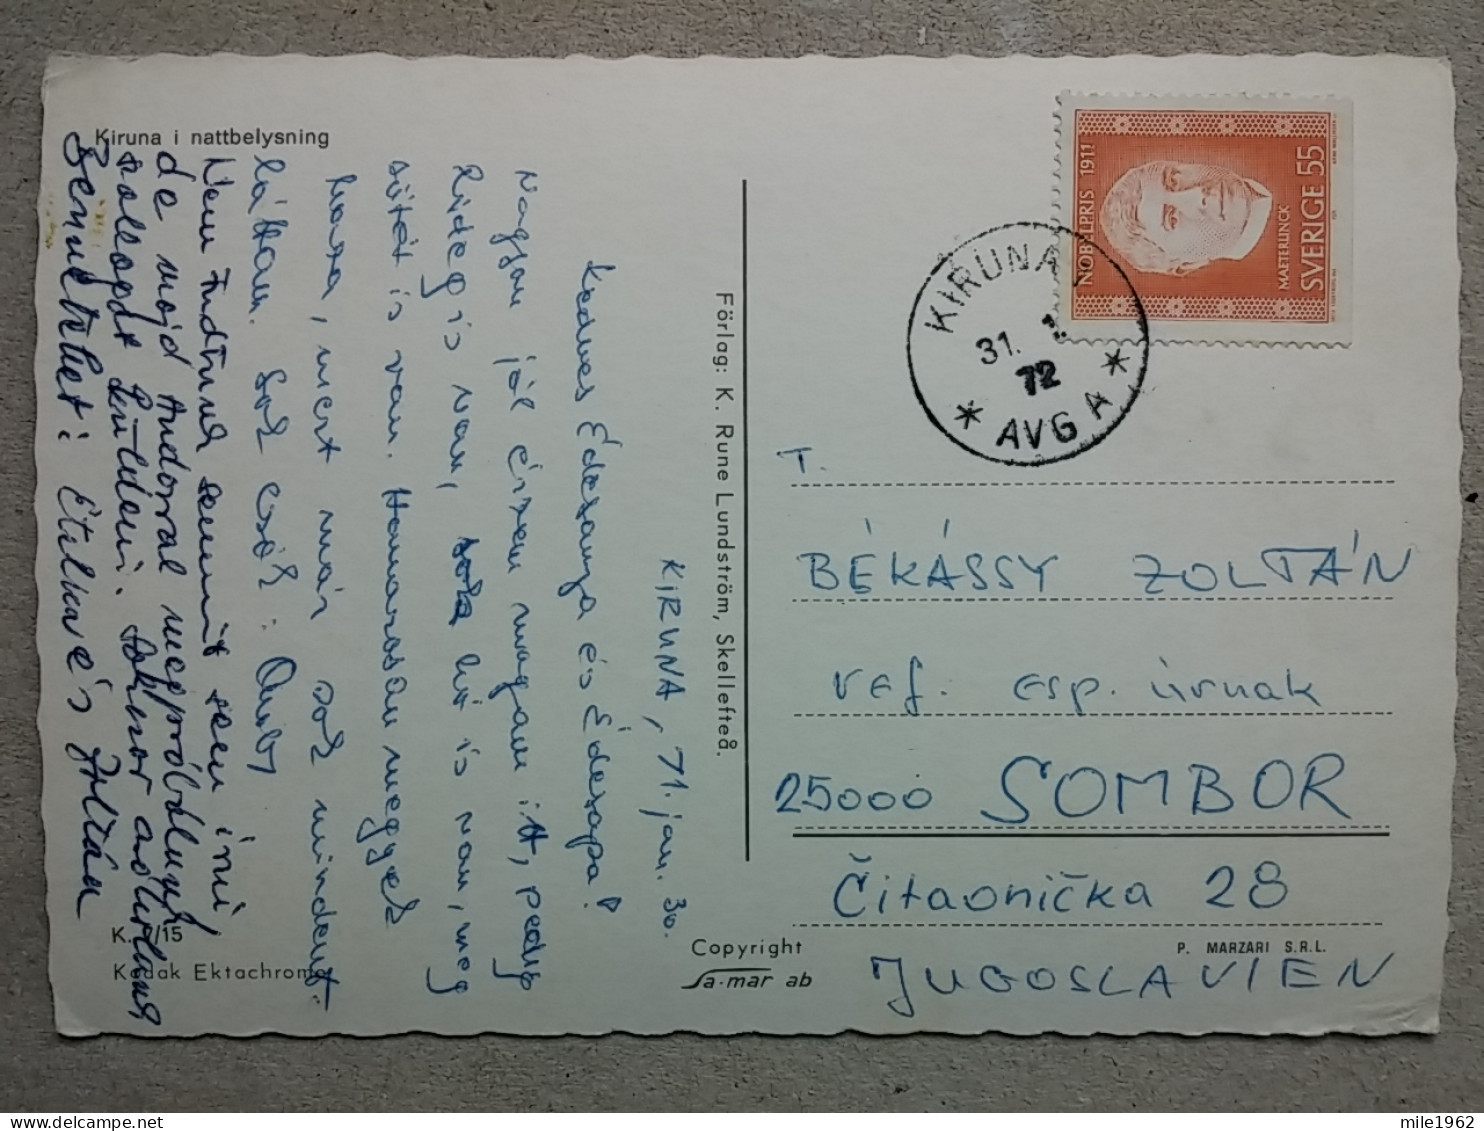 Kiruna i nattbelysning
KIRUNA, 71. jan. 30.
Kedves Édesanya és Édesapa!
Nagyon jól érzem magam itt, pedig
hideg is van, hó is van, meg
sötét is van. Hamarosan megyek
haza, mert már sok mindent
láttam. Sok csók:
Nem tudtunk semmit sem írni,
de majd Andorral megpróbálunk
Bennetket: Etelka és Zoltán
K. /15
Kodak Ektachrome
Förlag: K. Rune Lundström, Skellefteå.
Copyright
Sa-mar ab
P. MARZARI S.R.L.
NOBELPRIS 1911
MAETERLINCK
SVERIGE 55
KIRUNA 1
31.
72
* AVG A *
T.
BÉKÁSSY ZOLTÁN
ref. esp. úrnak
25000 SOMBOR
Čitaonička 28
JUGOSLAVIEN
mile1962